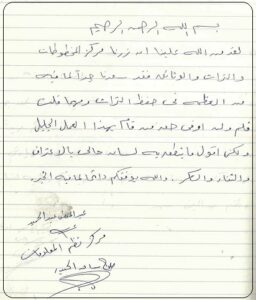 بسم الله الرحمن الرحيم
لقد من الله علينا ان زرنا مركز المخطوطات
والتراث والوثائق فقد سعدنا جداً لما فيه
من العظمة في حفظ التراث ومهما قلت
فلم ولن اوف حق من قام بهذا العمل الجليل
ولكن اقول ما ينطق به لسان حالي بالاعتراف
والثناء والشكر. والله يوفقكم دائماً لما فيه الخير.
عبد الحميد
مركز نظم المعلومات